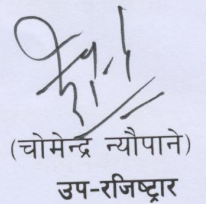 (चोमेन्द्र न्यौपाने)
उप-रजिष्ट्रार